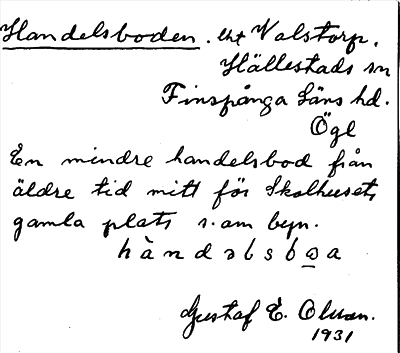 Handelsboden. lht Valstorp.
Hällestads sn
Finspånga Läns hd.
Ögl
En mindre handelsbod från
äldre tid mitt för Skolhusets
gamla plats s. om byn.
hàndəbsbo̲a
Gustaf E. Olsson.
1931